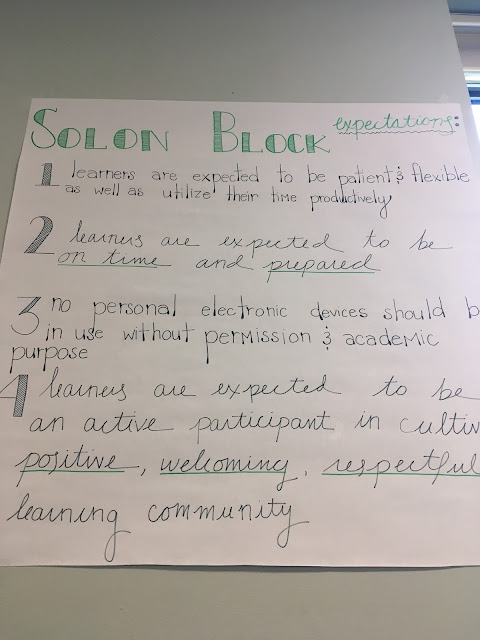 SOLON BLOCK expectations:
1 learners are expected to be patient & flexible
as well as utilize their time productively
2 learners are expected to be
on time and prepared
3 no personal electronic devices should b
in use without permission & academic
purpose
4 learners are expected to be
an active participant in cultiv
positive, welcoming, respectful
learning community